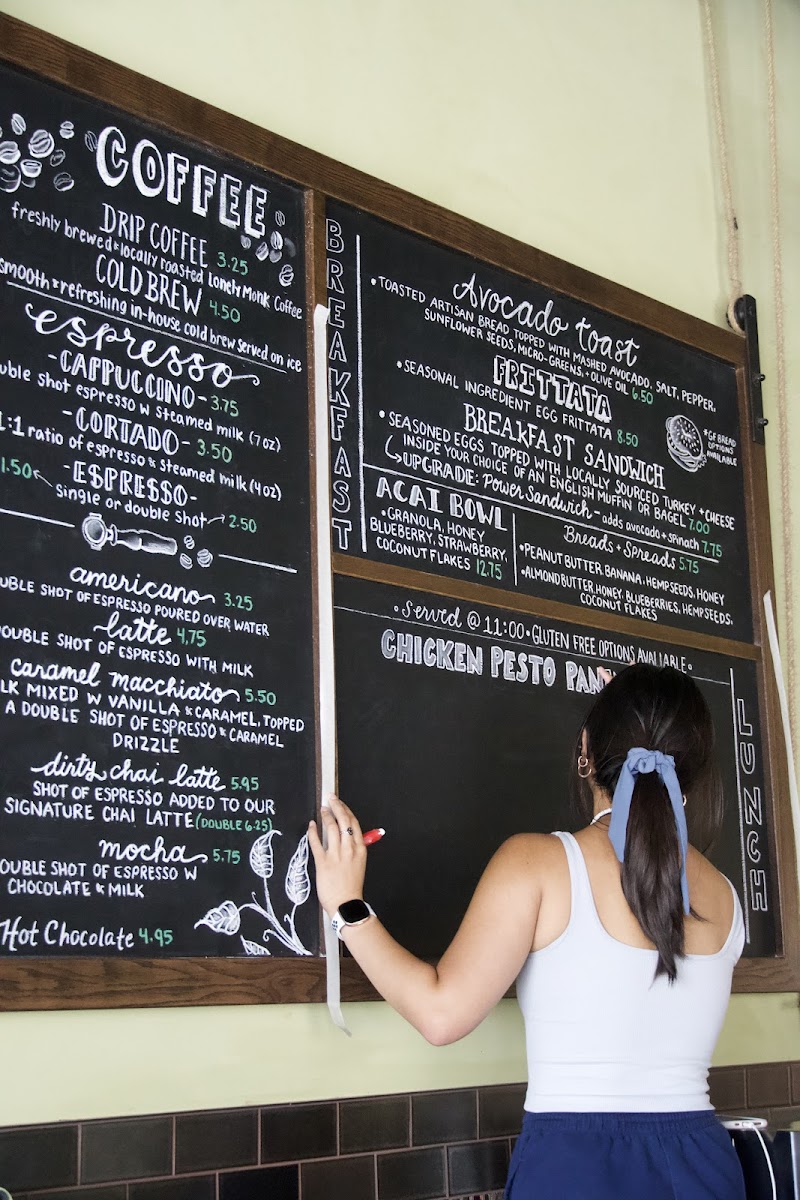 COFFEE
DRIP COFFEE 3.25
freshly brewed & locally roasted Lonely Monk Coffee
COLD BREW 4.50
smooth & refreshing in-house cold brew served on ice
espresso
-CAPPUCCINO- 3.75
uble shot espresso w steamed milk (7oz)
-CORTADO- 3.50
1:1 ratio of espresso & steamed milk (4oz)
-ESPRESSO-
1.50 single or double shot 2.50
americano 3.25
OUBLE SHOT OF ESPRESSO POURED OVER WATER
latte 4.75
DOUBLE SHOT OF ESPRESSO WITH MILK
caramel macchiato 5.50
LK MIXED W VANILLA & CARAMEL, TOPPED
A DOUBLE SHOT OF ESPRESSO & CARAMEL
DRIZZLE
dirty chai latte 5.95
SHOT OF ESPRESSO ADDED TO OUR
SIGNATURE CHAI LATTE (DOUBLE 6.25)
mocha 5.75
OUBLE SHOT OF ESPRESSO W
CHOCOLATE & MILK
Hot Chocolate 4.95
BREAKFAST
Avocado toast
•TOASTED ARTISAN BREAD TOPPED WITH MASHED AVOCADO, SALT, PEPPER,
SUNFLOWER SEEDS, MICRO-GREENS, + OLIVE OIL 6.50
FRITTATA
•SEASONAL INGREDIENT EGG FRITTATA 8.50
BREAKFAST SANDWICH
•SEASONED EGGS TOPPED WITH LOCALLY SOURCED TURKEY + CHEESE
INSIDE YOUR CHOICE OF AN ENGLISH MUFFIN OR BAGEL 7.00
UPGRADE: Power Sandwich - adds avocado + spinach 7.75
*GF BREAD
OPTIONS
AVAILABLE
ACAI BOWL
•GRANOLA, HONEY
BLUEBERRY, STRAWBERRY,
COCONUT FLAKES 12.75
Breads + Spreads 5.75
•PEANUT BUTTER, BANANA, HEMPSEEDS, HONEY
•ALMOND BUTTER, HONEY, BLUEBERRIES, HEMPSEEDS,
COCONUT FLAKES
Served @ 11:00 • GLUTEN FREE OPTIONS AVALIABLE
CHICKEN PESTO PAN
LUNCH